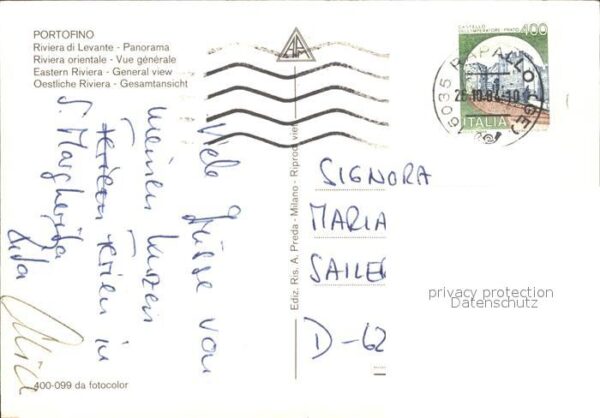 PORTOFINO
Riviera di Levante - Panorama
Riviera orientale - Vue générale
Eastern Riviera - General view
Oestliche Riviera - Gesamtansicht
CASTELLO
DELL'IMPERATORE · PRATO
400
ITALIA
16035 RAPALLO (GE)
Viele Grüsse von
meinen kurzen
Ferien in
S. Margherita
Ediz. Ris. A. Preda - Milano - Riprod. viet
SIGNORA
MARIA
SAILER
D-62
privacy protection
Datenschutz
400-099 da fotocolor